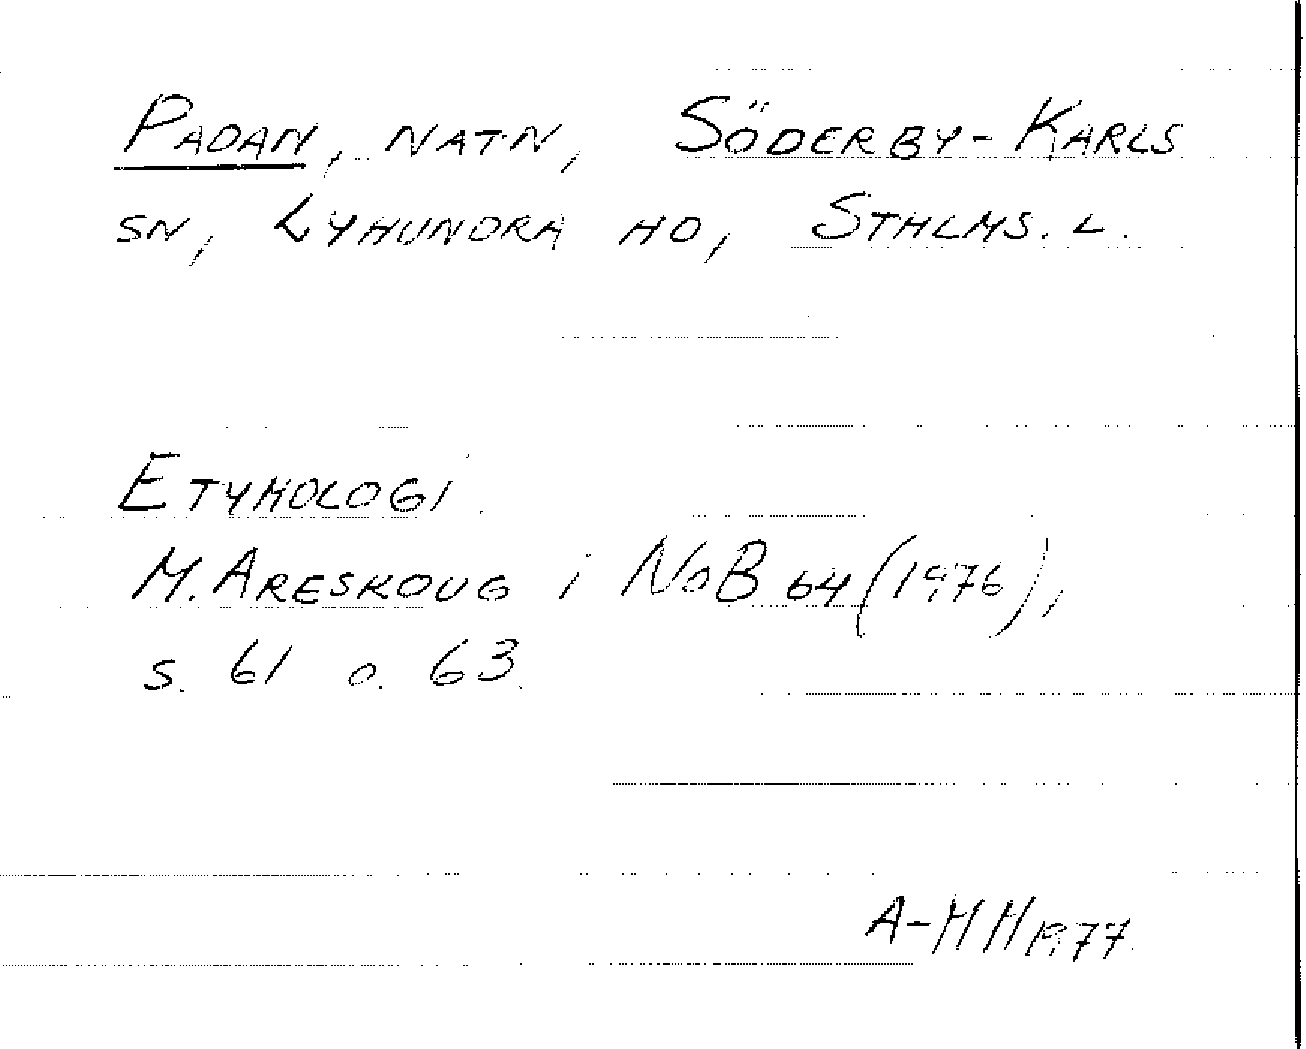 PADAN, NATN, SÖDERBY-KARLS
SN, LYHUNDRA HD, STHLMS. L.
ETYMOLOGI.
M. ARESKOUG i NoB 64 (1976),
s. 61 o. 63.
A-MH 1977.